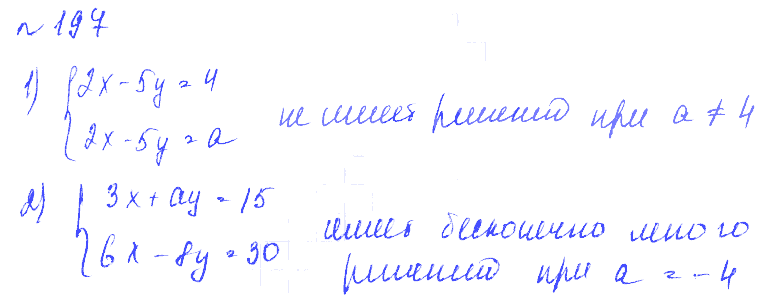 № 197
1) { 2x - 5y = 4
2x - 5y = a не имеет решений при a ≠ 4
2) { 3x + ay = 15
6x - 8y = 30 имеет бесконечно много
решений при a = -4